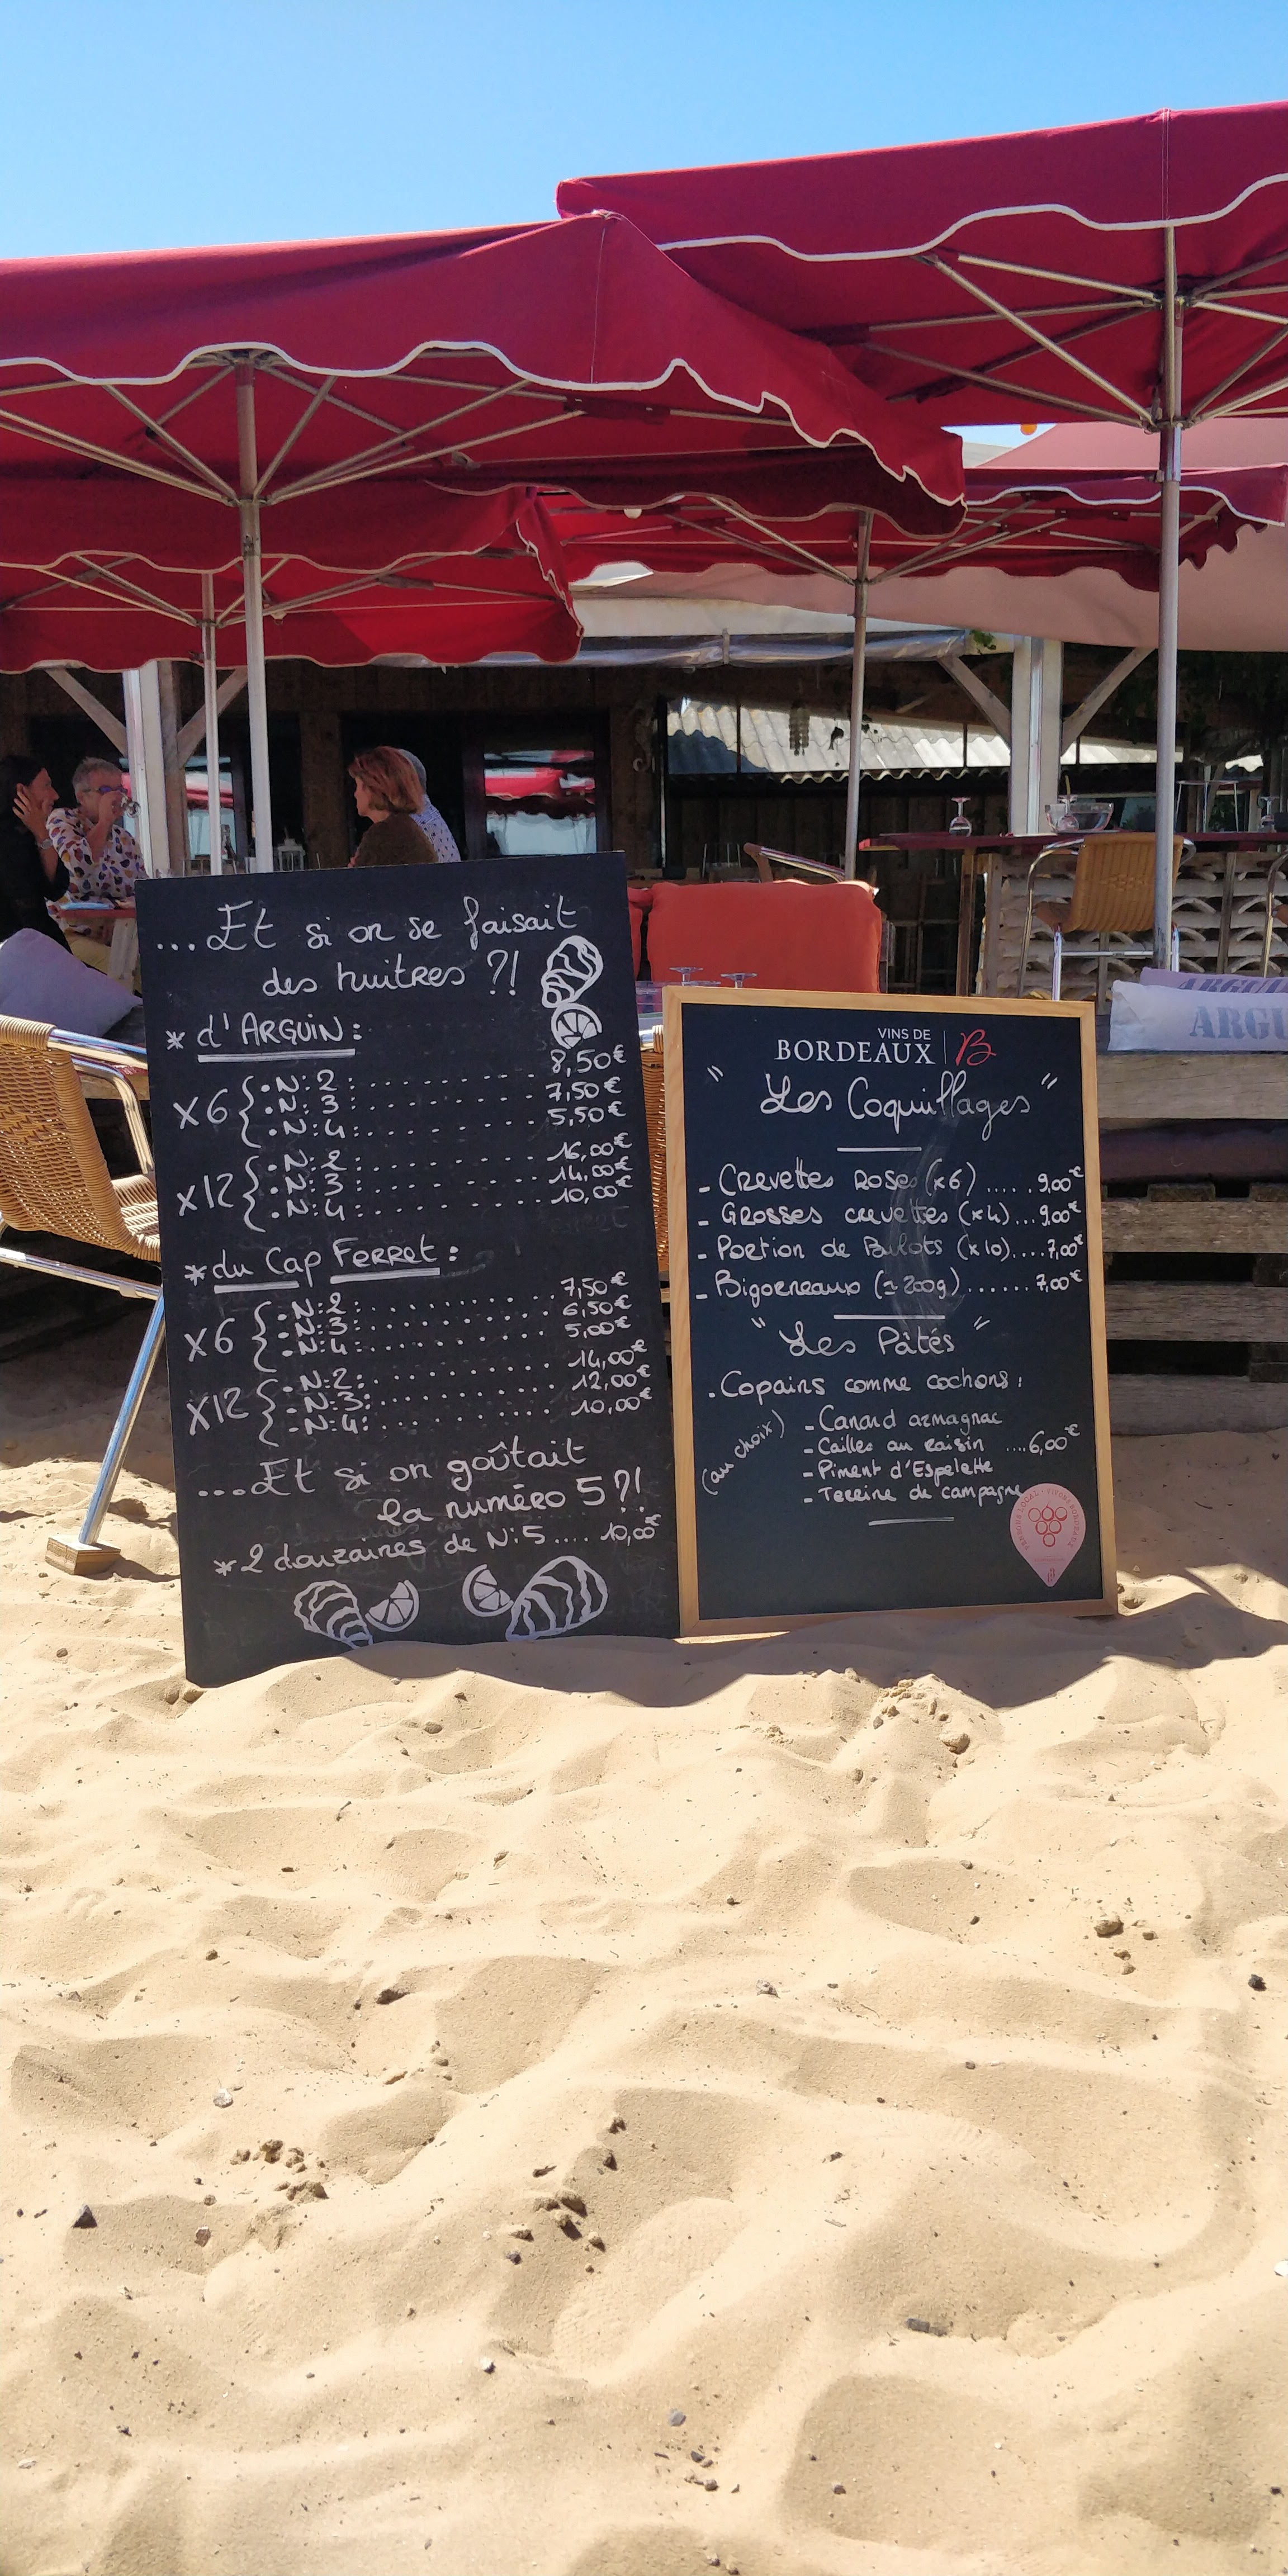 ...Et si on se faisait
des huitres ?!
* d'ARGUIN:
x6 { • N:2 : .......... 8,50€
• N: 3 .......... 7,50€
• N:4: .......... 5,50€
x12 { • N: 2 .......... 16,00€
• N: 3 .......... 14,00€
• N: 4 .......... 10,00€
* du Cap FERRET :
x6 { • N:2: .......... 7,50€
• N:3: .......... 6,50€
• N:4 .......... 5,00€
x12 { • N:2: .......... 14,00€
• N:3: .......... 12,00€
• N:4: .......... 10,00€
...Et si on goûtait
la numéro 5?!
* 2 douzaines de N:5.... 10,00€
VINS DE
BORDEAUX B
" Les Coquillages "
- Crevettes Roses (x6) ..... 9,00€
- Grosses crevettes (x4)... 9,00€
- Portion de Bulots (x10).... 7,00€
- Bigorneaux (≃ 200g) ....... 7,00€
" Les Pâtés "
. Copains comme cochons :
(au choix)
- Canard armagnac
- Cailles au raisin .... 6,00€
- Piment d'Espelette
- Terrine de campagne
ARGUI
ARGU